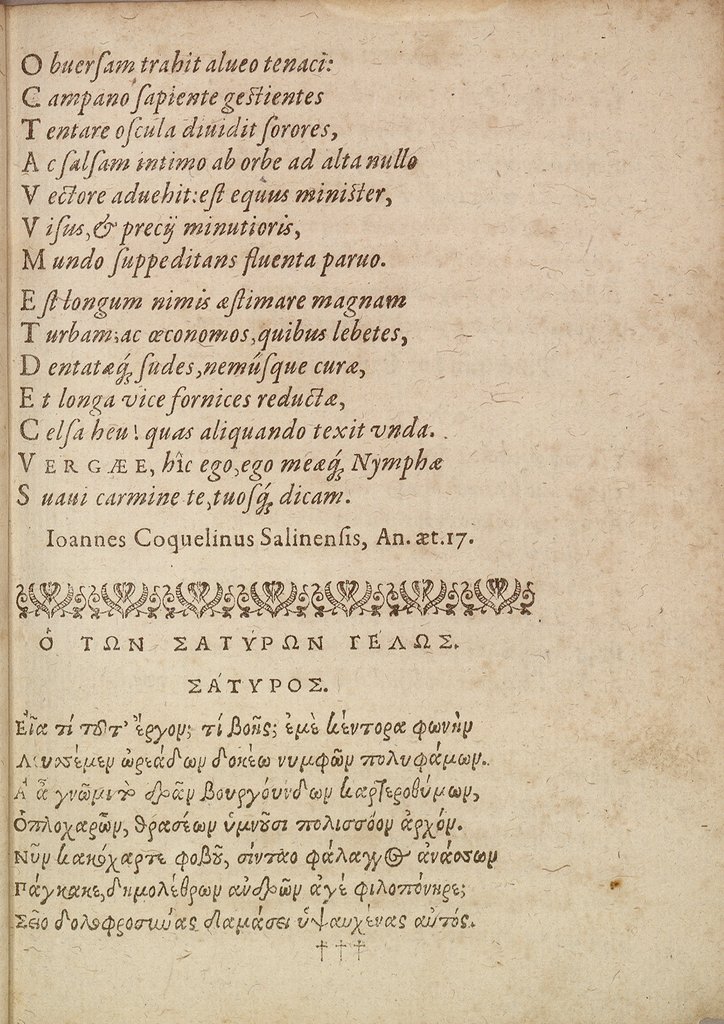 O buerſam trahit alueo tenaci:
C ampano ſapiente geſtientes
T entare oſcula diuidit ſorores,
A c ſalſam intimo ab orbe ad alta nullo
V ectore aduehit: eſt equus miniſter,
V iſus, & precij minutioris,
M undo ſuppeditans fluenta paruo.
E ſt longum nimis æſtimare magnam
T urbam; ac œconomos, quibus lebetes,
D entatæq́; ſudes, nemúſque curæ,
E t longa vice fornices reductæ,
C elſa heu! quas aliquando texit vnda.
V ERGÆE, hîc ego, ego meæq́; Nymphæ
S uaui carmine te, tuoſq́; dicam.
Ioannes Coquelinus Salinenſis, An. æt. 17.
Ὁ ΤΩΝ ΣΑΤΥΡΩΝ ΓΕΛΩΣ.
ΣΑΤΥΡΟΣ.
Εἶα τί τοῦτ' ἔργον; τί βοῆς; ἐμὲ κέντορα φωνὴν
ὠρεάδων δοκέω νυμφῶν πολυφάμων.
Ἀ ἆ ἀνδρῶν βουργούνδων καρτεροθύμων,
Ὁπλοχαρῶν, θρασέων ὑμνοῦσι πολισσόον ἀρχόν.
Νῦν κακόχαρτε φοβοῦ, φάλαγγος
Πάγκακε, δημολέθρων ἀνδρῶν ἀγὲ φιλοπόνηρε;
Σεῖο δολοφροσύνας δαμάσει ὑψαυχένας αὐτός.
†††